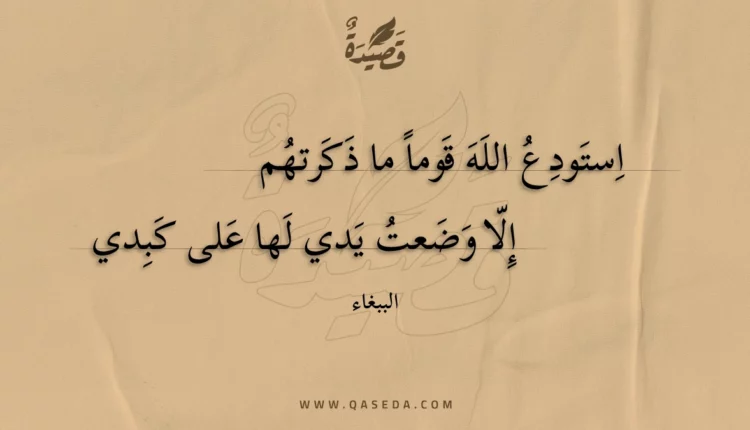 قَصِيدَةٌ
اِستَودِعُ اللَهَ قَوماً ما ذَكَرتهُم
إِلّا وَضَعتُ يَدي لَها عَلى كَبِدي
الببغاء
WWW.QASEDA.COM